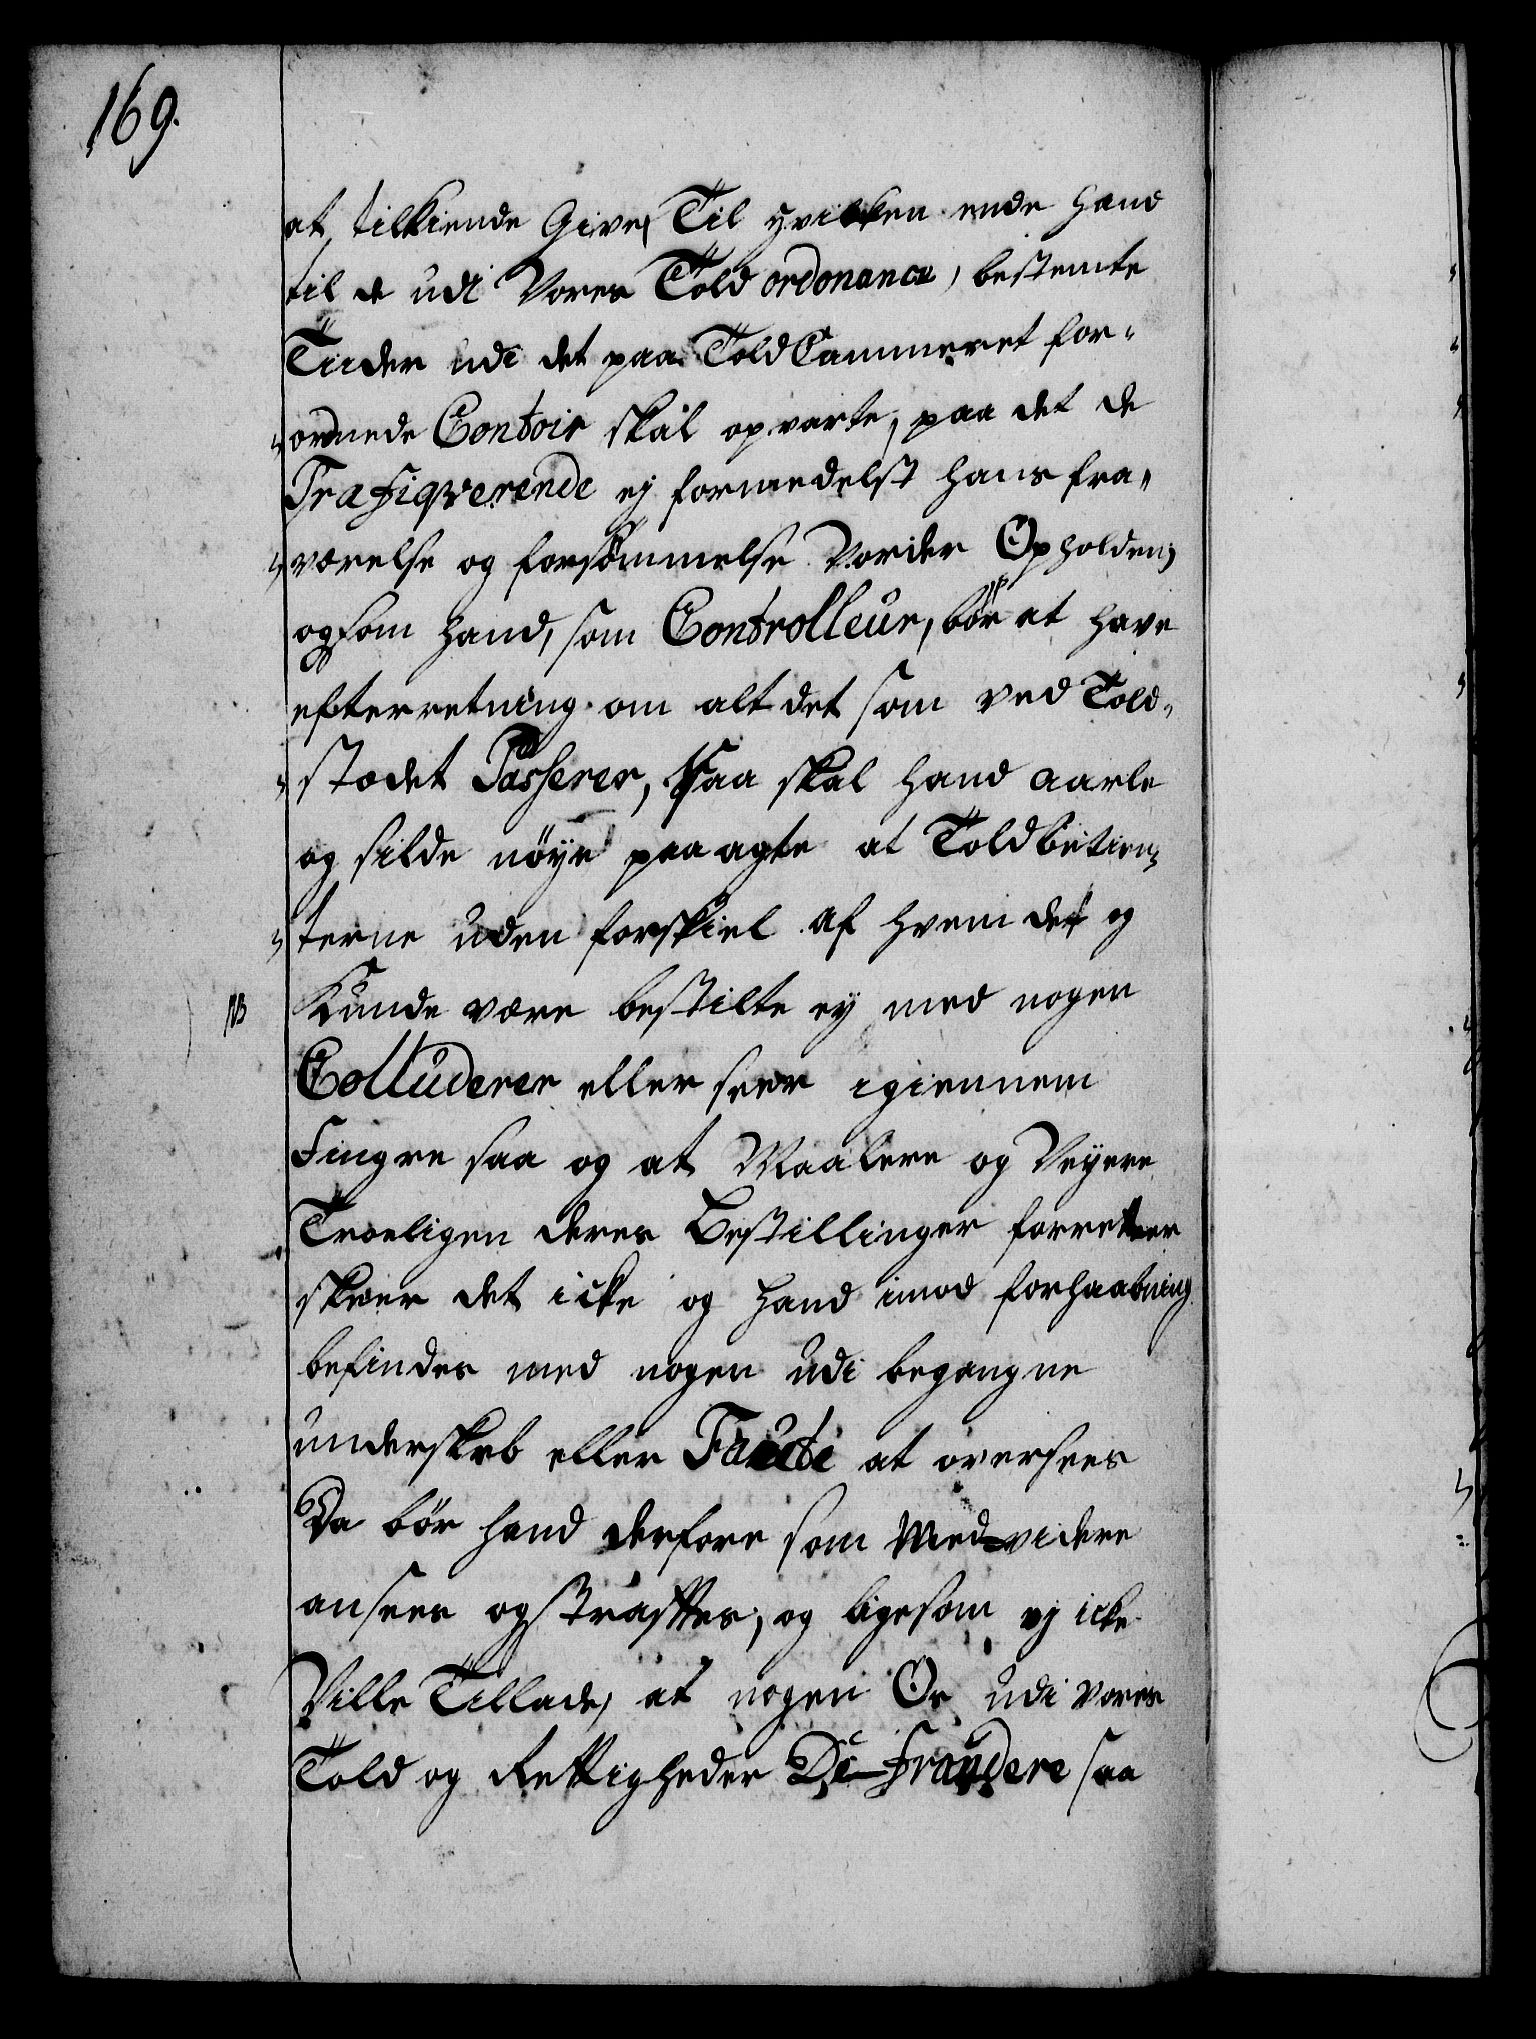 169.
at tilkiende Give, Til hvilken ende hand
til de udi Vores Told ordonance, bestemte
Tiider udi det paa Told Cammeret for-
ordnede Contoir skal opvarte, paa det de
Trafiqverende ej formedelst hans fra-
værelse og forsømmelse Vorder Opholden;
og som hand, som Controlleur, bør at have
efterretning om alt det som ved Told-
stædet Passerer, Saa skal hand aarle
og silde nøye paaagte at Toldbetien-
terne uden forskiel af hvem det og
NB Kunde være bestilte ey med nogen
Colluderer eller seer igiennem
Fingre saa og at Maalere og Veyere
Troeligen deres Bestillinger forretter
skeer det icke og hand imod forhaabning
befindes med nogen udi begangne
underskeb eller at oversees
Da bør hand derfore som Medvidere
ansees og straffes, og ligesom vj icke
Ville Tillade, at nogen Os udi vores
Told og Rettigheder De-fraudere saa